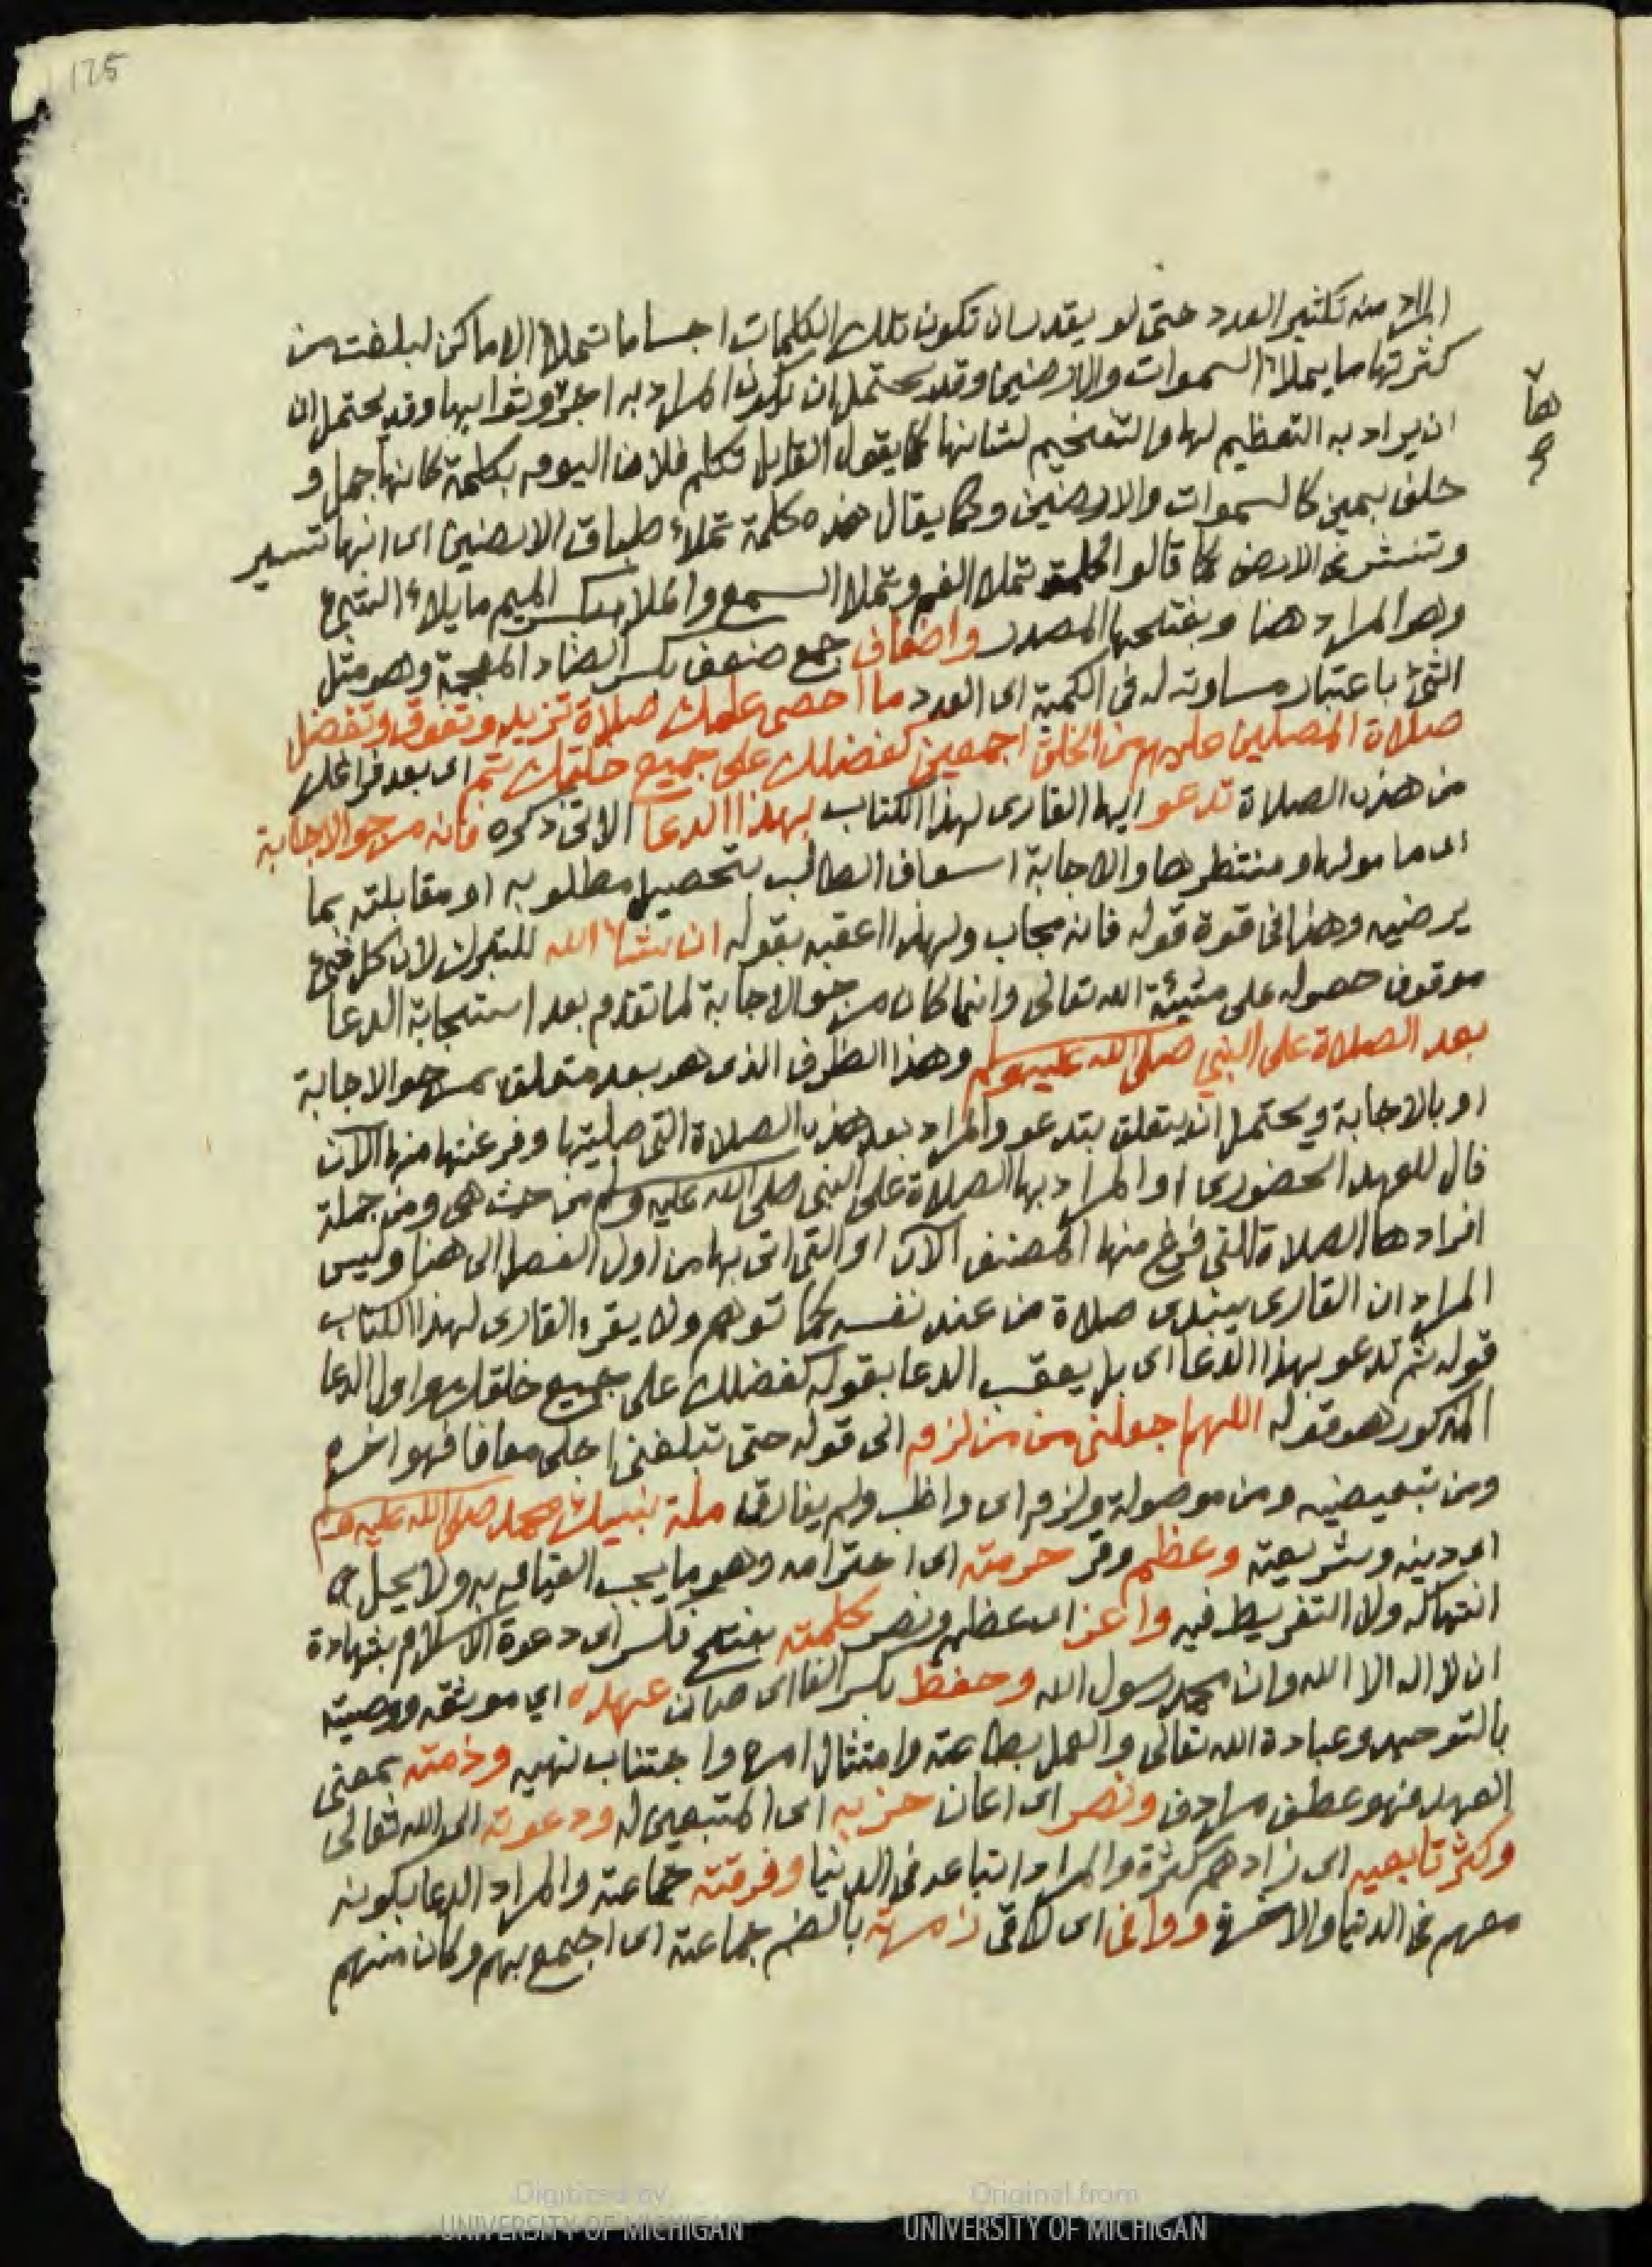 125
المراد منه تكثير العدد حتى لو يقدر ان تكون تلك الكلمات اجساما تملأ الاماكن لبلغت من
كثرتها ما يملأ السموات والارضين وقد يحتمل ان يكون المراد به اجرها وثوابها وقد يحتمل ان
ها
ان يراد به التعظيم لها والتفخيم لشانها كما يقول القايل تكلم فلان اليوم بكلمة كانها جبل و
حلف بيمين كالسموات والارضين وكما يقال هذه كلمة تملأ طباق الارضين اى انها تسير
وتنتشر فى الارض كما قالوا كلمة تملا الفم وتملا السمع والملا بكسر الميم ما يلأ الشئ
وهو المراد هنا وبفتحها المصدر واضعاف جمع ضعف بكسر الضاد المعجمة وهو مثل
الشئ باعتبار مساوته له فى الكمية اى العدد ما احصى علمك صلاة تزيد وتفوق وتفضل
صلاة المصلين عليهم من الخلق اجمعين كفضلك على جميع خلقك ثم اى بعد فراغك
من هذه الصلاة تدعو ايها القارى لهذا الكتاب بهذا الدعا الاتى ذكره فانه مرجو الاجابة
اى مامولها او منتظرها والاجابة اسعاف الطالب بتحصيل مطلوبه او مقابلته بما
يرضيه وهذا فى قوة قوله فانه مجاب ولهذا اعقبه بقوله ان شا الله للتبرك لان كل شئ
موقوف حصوله على مشيئة الله تعالى وانما كان مرجو الاجابة لما تقدم بعد استجابة الدعا
بعد الصلاة على النبي صلى الله عليه وسلم وهذا الظرف الذى هو بعد متعلق بمرجو الاجابة
او بالاجابة ويحتمل انه يتعلق بتدعو والمراد بعد هذه الصلاة التى صليتها وفرغتها منها الآن
فال للعهد الحضورى او المراد بها الصلاة على النبى صلى الله عليه وسلم من حيث هى ومن جملة
افرادها الصلاة التى فرغ منها المصنف الآن او التى اتى بها من اول الفصل الى هنا وليس
المراد ان القارى يبتدى صلاة من عند نفسه كما توهم ولا يقرء القارى لهذا الكتاب
قوله ثم تدعو بهذا الدعا اى بل يعقب الدعا بقوله كفضلك على جميع خلقك واول الدعا
المذكور هو قوله اللهم اجعلنى من من لزم الى قوله حتى تبلغنى اجلى معافا فهو اخره
ومن تبعيضيه ومن موصولة ولزم اى واظب ولم يفارق ملة نبيك محمد صلى الله عليه وسلم
اى دينه وشريعته وعظم وقر حرمته اى احترامه وهو ما يجب القيام به ولا يحل
انتهاكه ولا التفريط فيه واعز اى عظم ونصر كلمته بفتح فكسر اى دعوة الاسلام بشهادة
ان لا اله الا الله وان محمد رسول الله وحفظ بكسر الفا اى صان عهده اي موثقه ووصيته
بالتوحيد وعبادة الله تعالى والعمل بطاعته وامتثال امره واجتناب نهيه وذمته بمعنى
العهد فهو عطف مرادف ونصر اى اعان حزبه اى المتبعين له ودعوته الى الله تعالى
وكثر تابعيه اى زادهم كثرة والمراد اتباعه فى الدنيا وفرقته جماعته والمراد الدعا بكونه
معهم فى الدنيا والاخرة ووافى اى لاقى زمرته بالضم جماعته اى اجتمع بهم وكان منهم
Digitized by
UNIVERSITY OF MICHIGAN
Original from
UNIVERSITY OF MICHIGAN